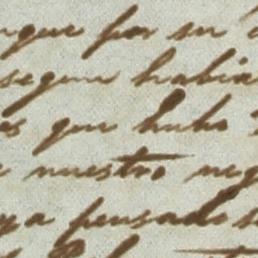 nque por su
segun habia
que hubo
nuestro neg
ya pensado s